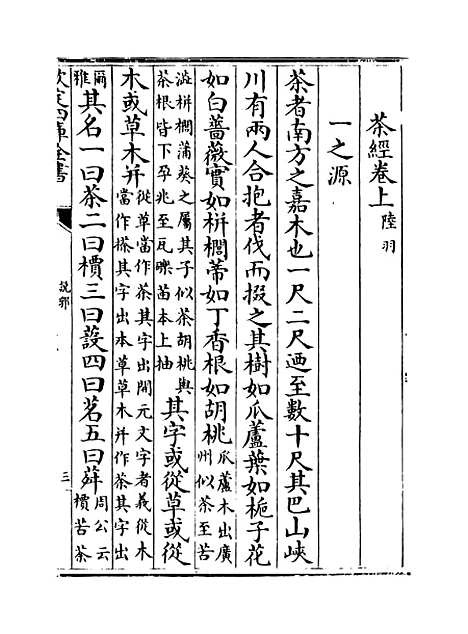 茶經卷上 陸羽
一之源
茶者南方之嘉木也一尺二尺迺至數十尺其巴山峽
川有兩人合抱者伐而掇之其樹如瓜蘆葉如梔子花
如白薔薇實如栟櫚蒂如丁香根如胡桃 瓜蘆木出廣州似茶至苦
澁栟櫚蒲葵之屬其子似茶胡桃與茶根皆下孕兆至瓦礫苗本上抽 其字或從草或從
木或草木并 從草當作茶其字出開元文字者義從木當作搽其字出本草草木并作荼其字出
爾雅 其名一曰茶二曰檟三曰蔎四曰茗五曰荈 周公云檟苦荼
欽定四庫全書
説郛
三